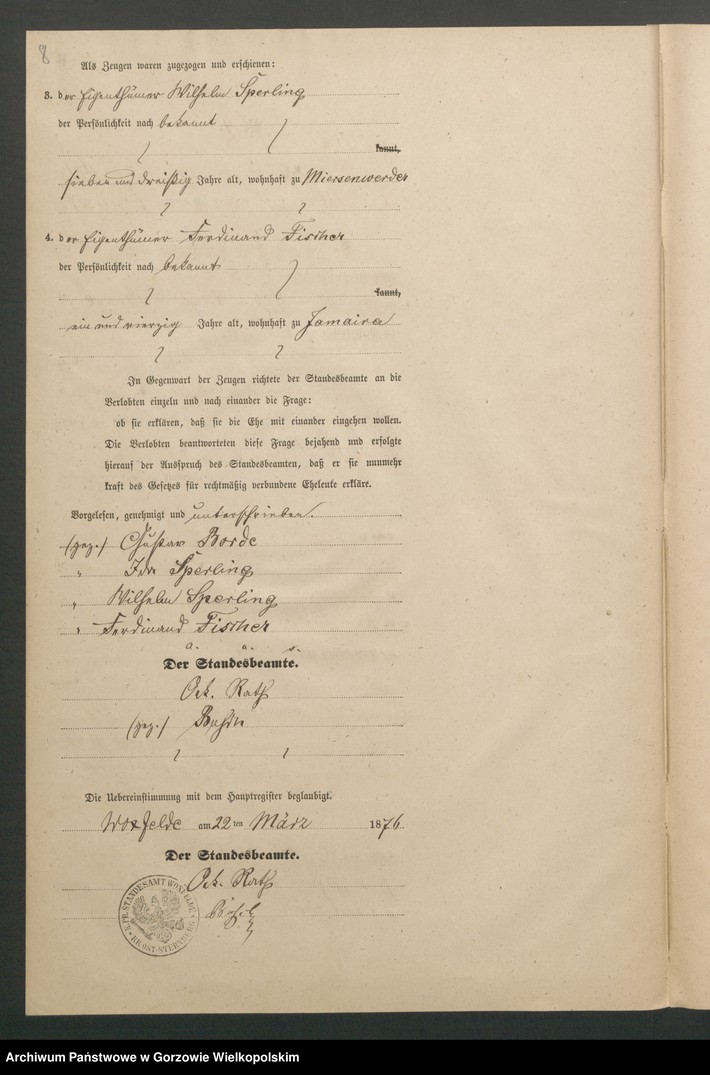 8
Als Zeugen waren zugezogen und erschienen:
3. der Eigenthümer Wilhelm Sperling
der Persönlichkeit nach bekannt
kannt,
sieben und dreißig Jahre alt, wohnhaft zu Miersenwerder
4. der Eigenthümer Ferdinand Fischer
der Persönlichkeit nach bekannt
kannt,
ein und vierzig Jahre alt, wohnhaft zu Jamaica
In Gegenwart der Zeugen richtete der Standesbeamte an die
Verlobten einzeln und nach einander die Frage:
ob sie erklären, daß sie die Ehe mit einander eingehen wollen.
Die Verlobten beantworteten diese Frage bejahend und erfolgte
hierauf der Ausspruch des Standesbeamten, daß er sie nunmehr
kraft des Gesetzes für rechtmäßig verbundene Eheleute erkläre.
Vorgelesen, genehmigt und unterschrieben.
(gez.) Gustav Borde
" Ida Sperling
" Wilhelm Sperling
" Ferdinand Fischer
a. u. s.
Der Standesbeamte.
Oek. Rath
(gez.)
Die Uebereinstimmung mit dem Hauptregister beglaubigt.
Woxfelde am 22ten März 1876
Der Standesbeamte.
Oek. Rath
K. PR. STANDESAMT WOXFELDE * KR. OST-STERNBERG *
Archiwum Państwowe w Gorzowie Wielkopolskim